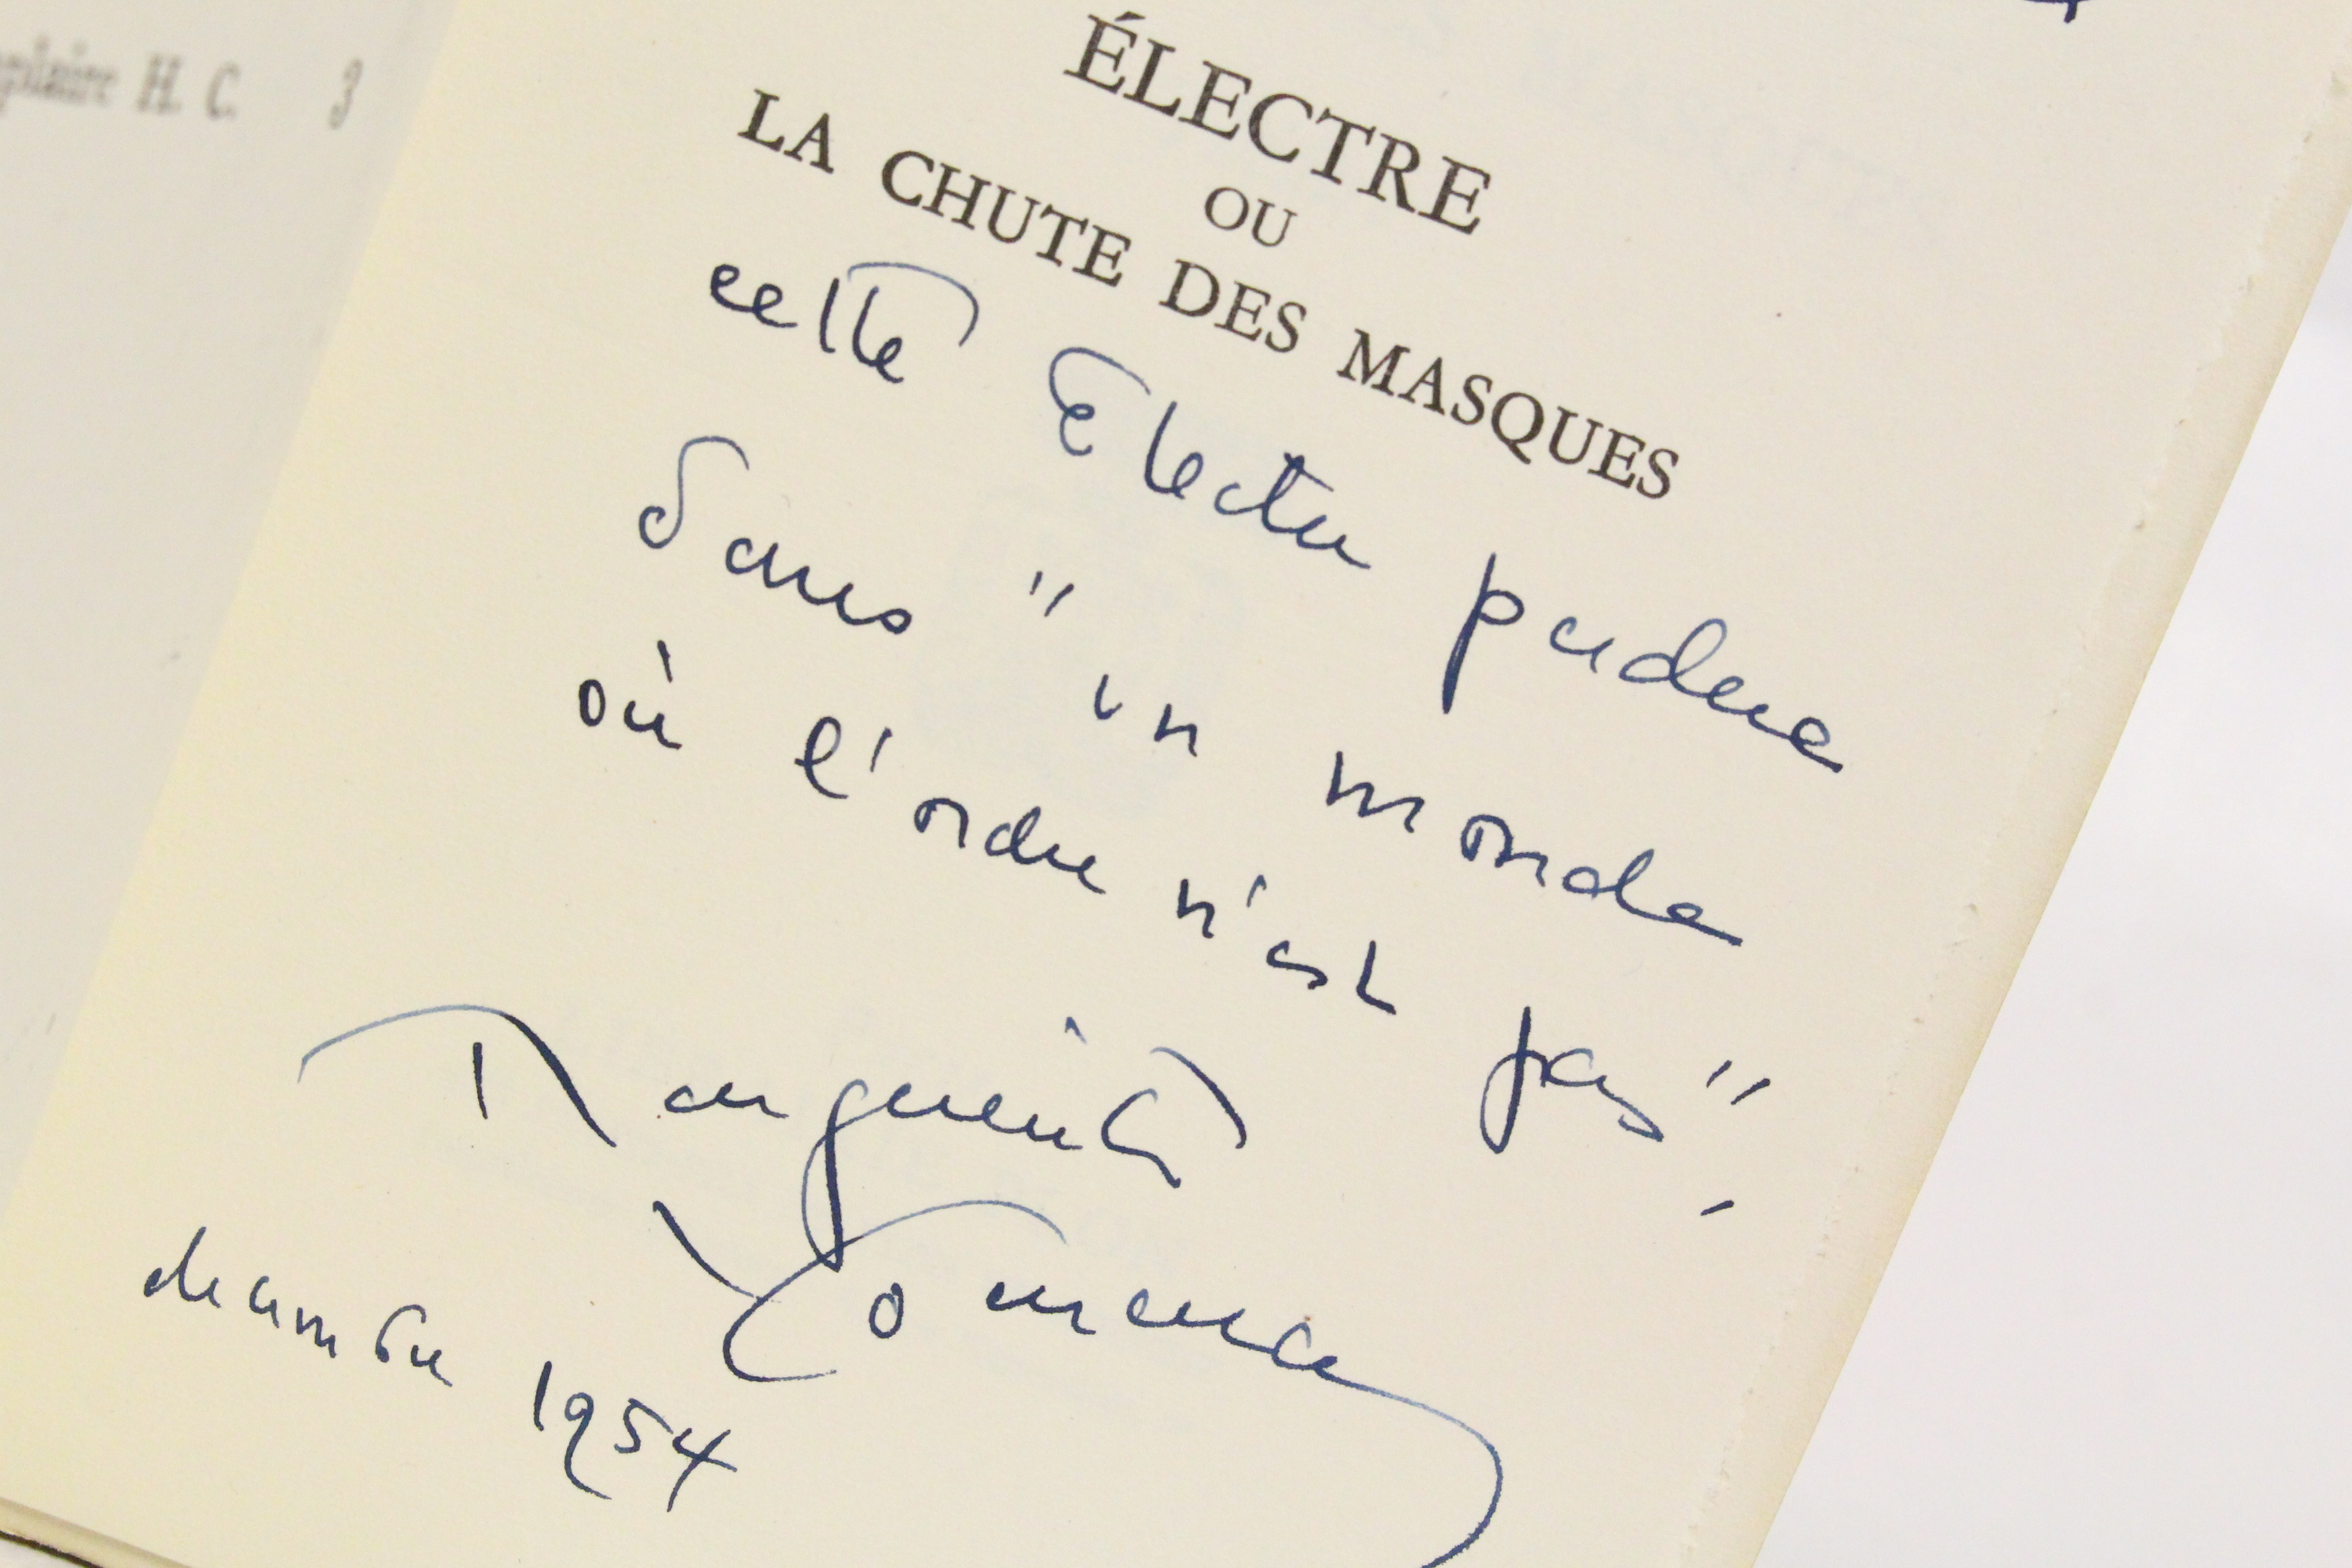 exemplaire H. C. 3
ÉLECTRE
OU
LA CHUTE DES MASQUES
cette Electre perdue
dans " un monde
où l'ordre n'est pas "
Marguerite
Yourcenar
décembre 1954